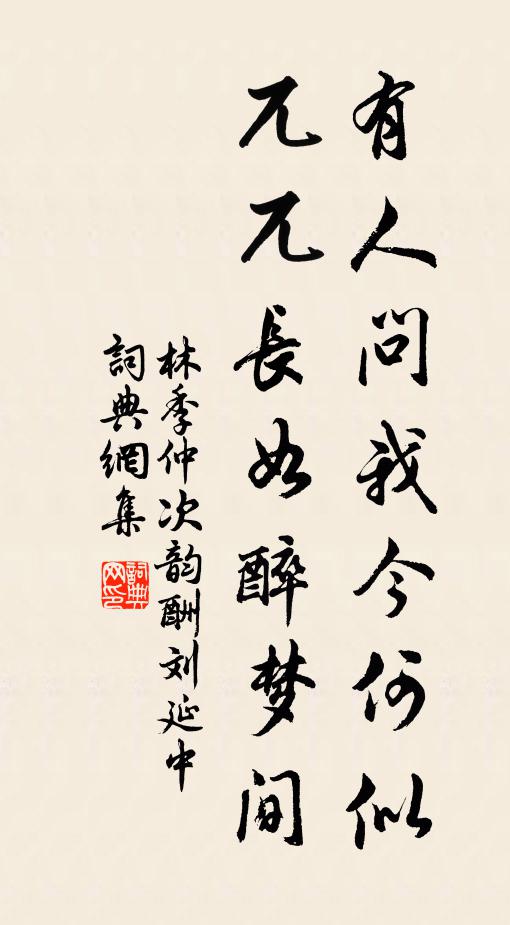 有人问我今何似
兀兀長如醉梦间
林季仲次韵酬刘延中
詞典網集
詞典网印